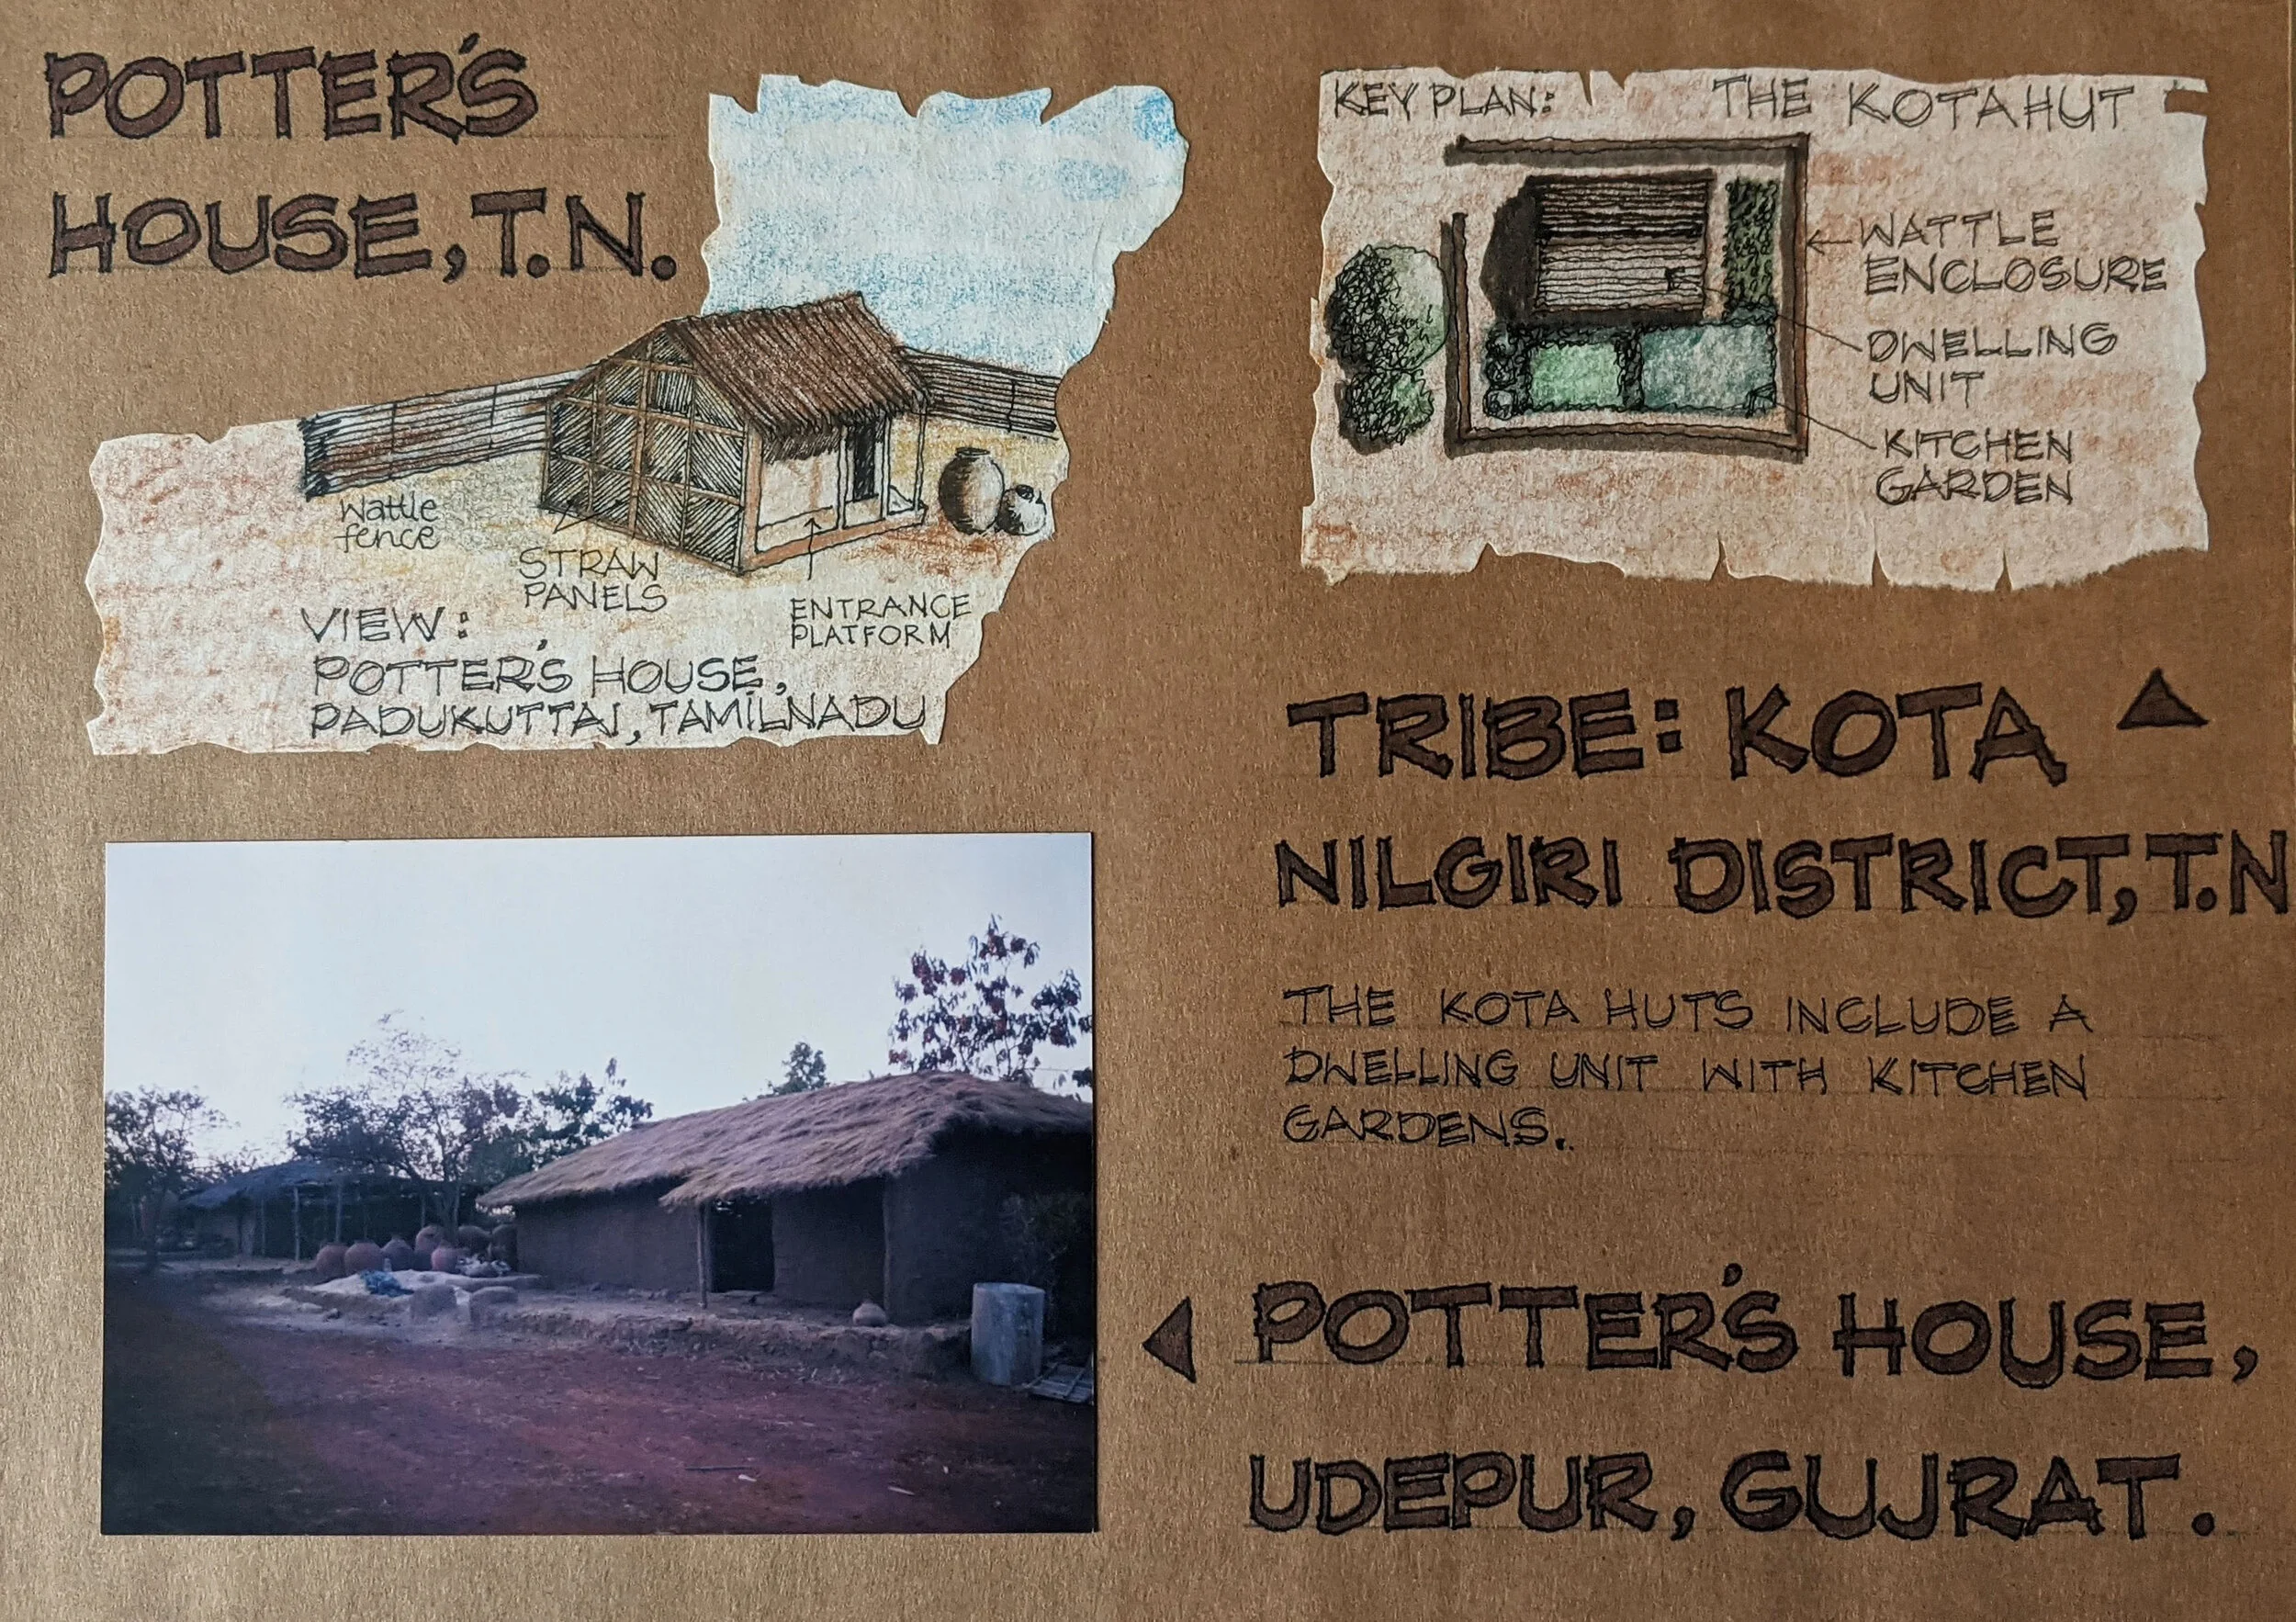 POTTER'S
HOUSE, T.N.
Wattle
fence
STRAW
PANELS
ENTRANCE
PLATFORM
VIEW:
POTTER'S HOUSE,
PADUKUTTAI, TAMILNADU
KEY PLAN: THE KOTA HUT
WATTLE
ENCLOSURE
DWELLING
UNIT
KITCHEN
GARDEN
TRIBE: KOTA
NILGIRI DISTRICT, T.N
THE KOTA HUTS INCLUDE A
DWELLING UNIT WITH KITCHEN
GARDENS.
POTTER'S HOUSE,
UDEPUR, GUJRAT.